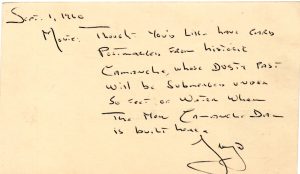 Sept. 1, 1960
Movie: Thought You'd Like have card
Postmarked From historic
Camanche, whose Dusty Past
will be Submerged under
50 feet of Water When
The New Camanche Dam
is built here.